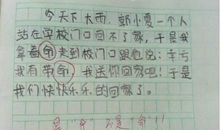 今天下大雨，郭小雯一个人
站在学校门口回不了家，于是我
拿着命走到校门口跟她说：幸亏
我有革命，我送你回家吧！于是
我们快快乐乐的回家了。
是“伞”不是“命”!!